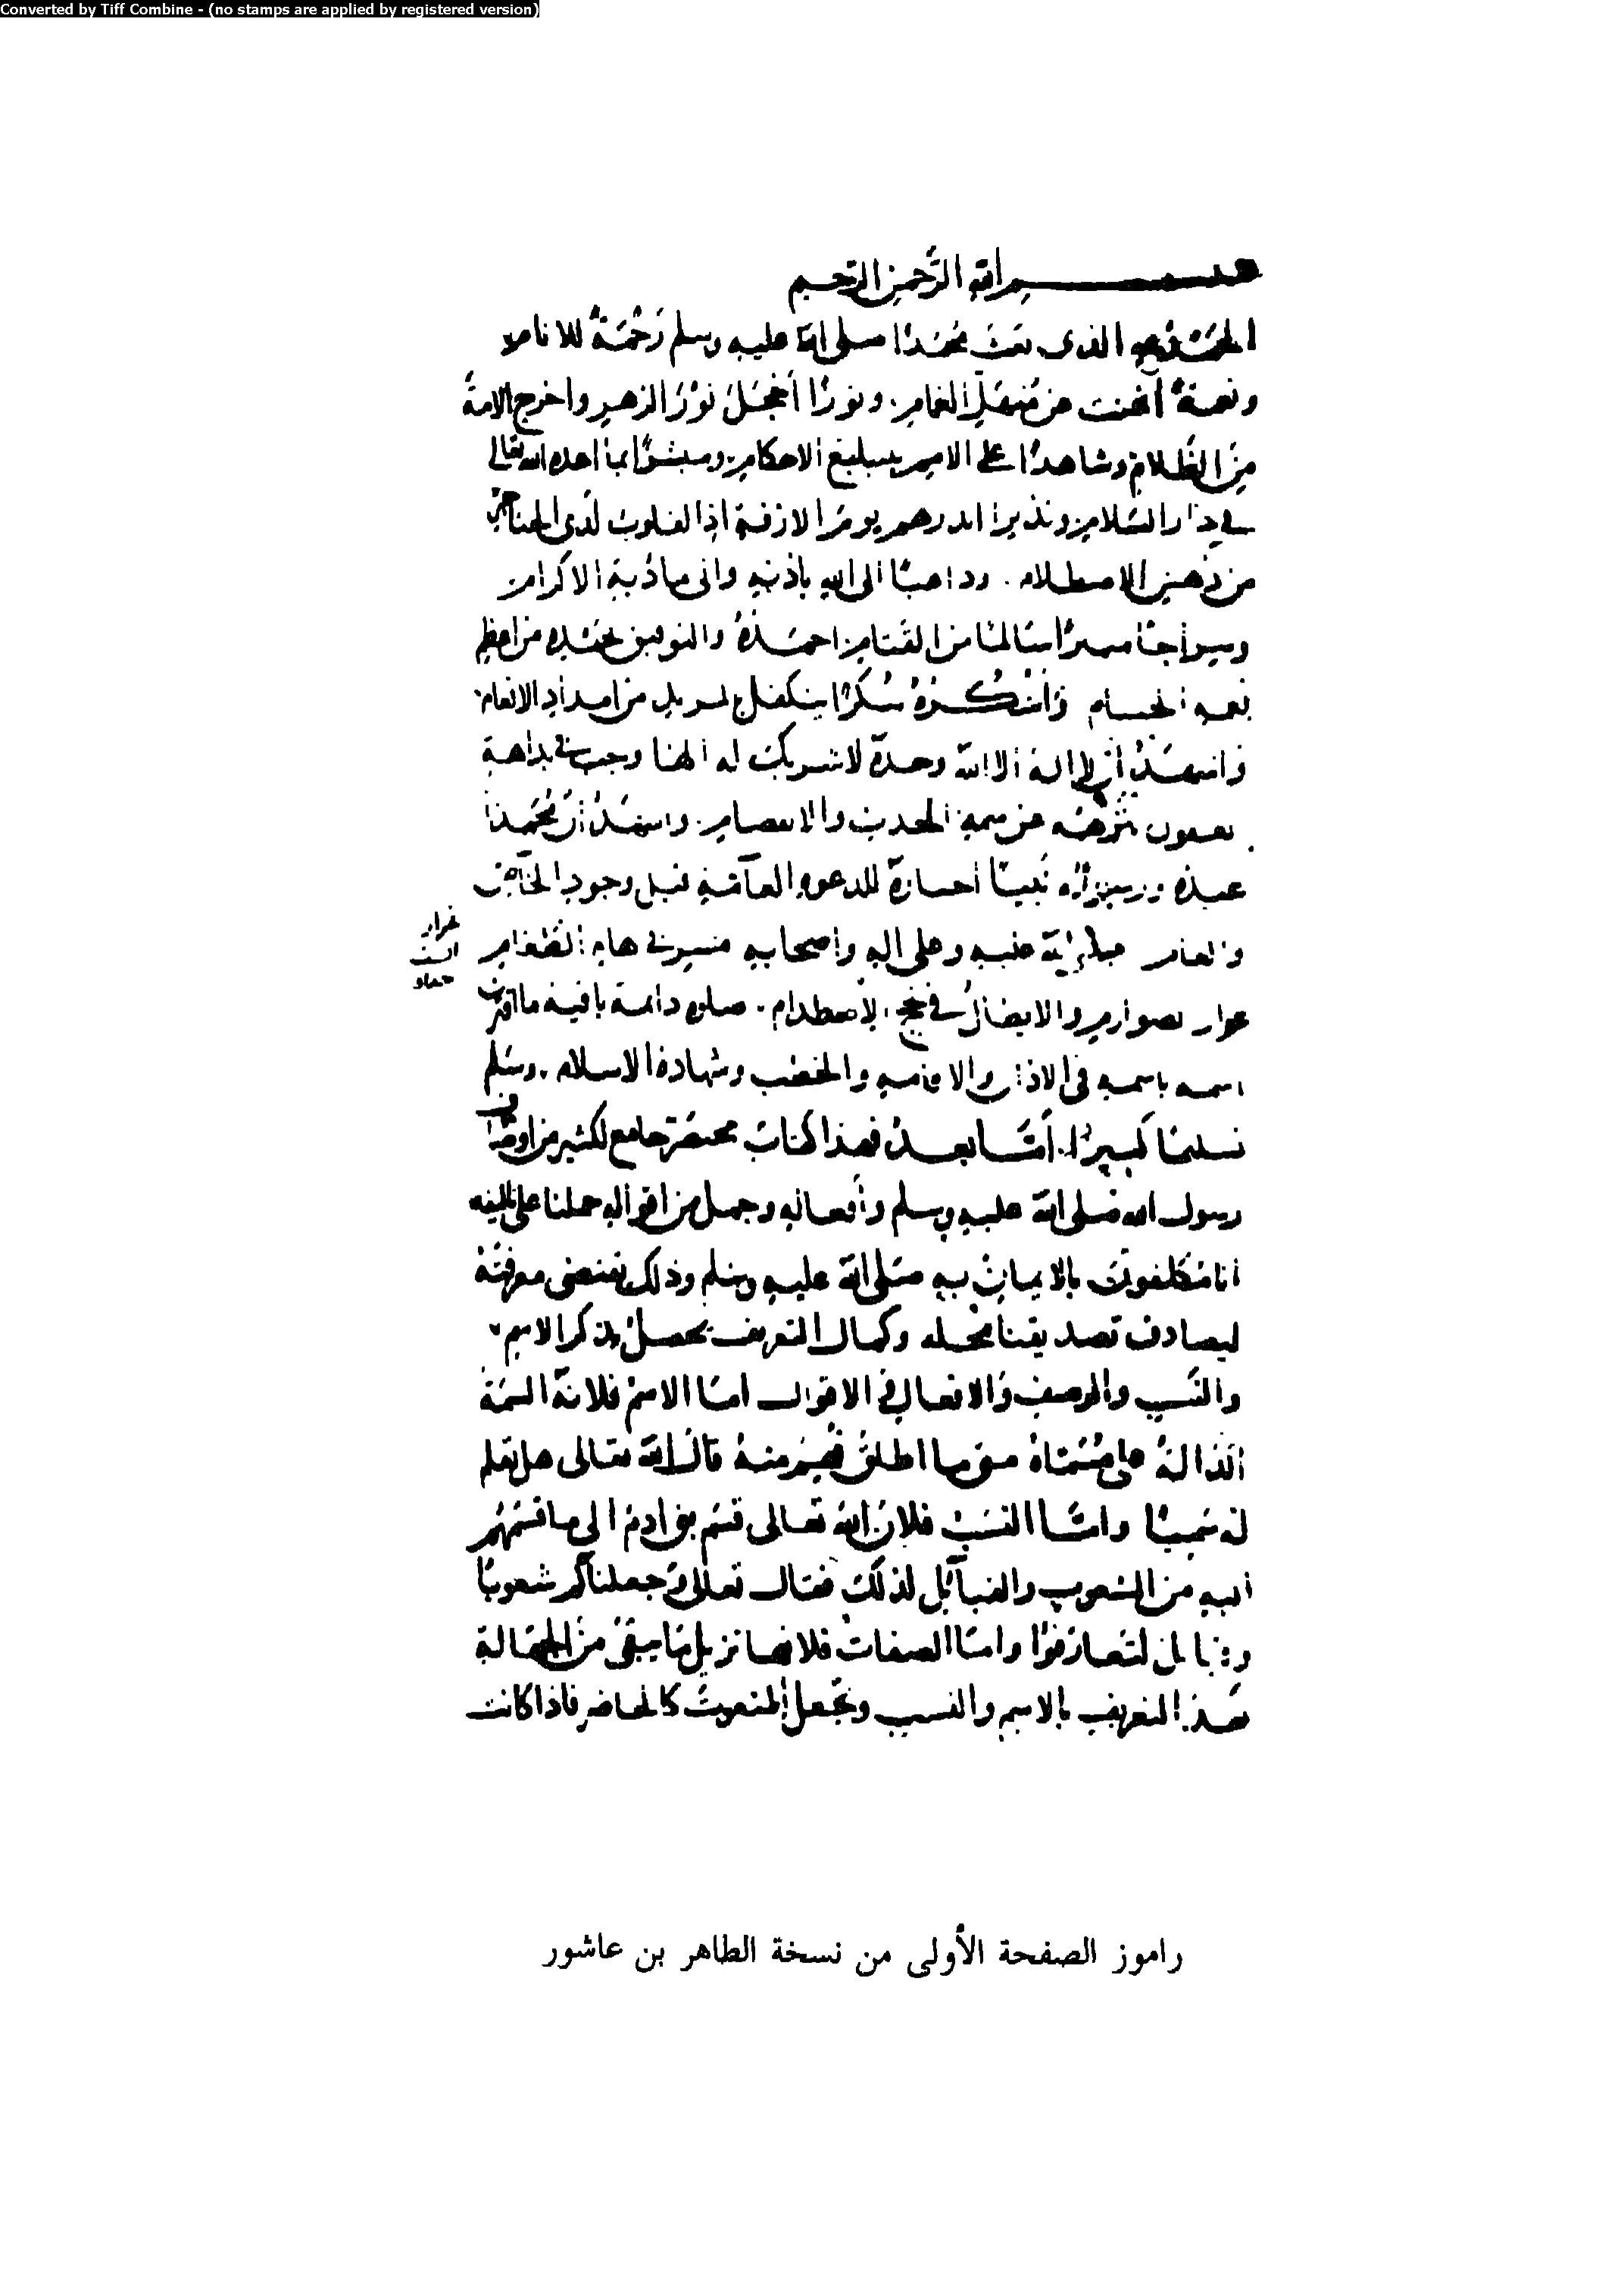 Converted by Tiff Combine - (no stamps are applied by registered version)
بسم الله الرحمن الرحيم
الحمد لله الذي بعث محمدا صلى الله عليه وسلم رحمة للأنام
ونعمة أغنت عن منهل الغمام ونورا أخجل نور الزهر وأخرج الأمة
من الظلام وشاهدا على الأمم بتبليغ الأحكام ومبشرا بما أعده الله تعالى
في دار السلام ونذيرا أنذرهم يوم الآزفة إذ القلوب لدى الحناجر
من الاصطلام وداعيا إلى الله بإذنه وإلى مأدبة الإكرام
وسراجا منيرا سالما من القتام أحمده والتوفيق لحمده من أعظم
نعمه الجسام وأشكره شكرا يتكفل من إمداد الإنعام
وأشهد أن لا إله إلا الله وحده لا شريك له إلها وجب في بداهة
تنزهه عن سمة الحدث والانصام وأشهد أن محمدا
عبده ورسوله نبيا للدعوة العامة قبل وجود الخاص
والعام صلى الله عليه وعلى آله وأصحابه في هام الطغام
غرار
السيف
صوارم والأبطال في الاصطدام صلاة دائمة باقية ما اقترن
اسمه باسمه في الأذان والإقامة والخطب وشهادة الإسلام وسلم
تسليما كثيرا أما بعد فهذا كتاب مختصر جامع لكثير من أوصاف
رسول الله صلى الله عليه وسلم وأفعاله وجمل من أقواله حملنا على تأليفه
أنا مكلفون بالإيمان به صلى الله عليه وسلم وذلك يقتضي معرفته
ليصادف تصديقنا محله وكمال التعريف يحصل بذكر الاسم
والنسب والوصف والأفعال والأقوال أما الاسم فلأنه السمة
الدالة على مسماه متى ما أطلق فهم منه قال الله تعالى هل تعلم
له سميا وأما النسب فلأن الله تعالى قسم بني آدم إلى ما قسمهم
إليه من الشعوب والقبائل لذلك فقال تعالى وجعلناكم شعوبا
وقبائل لتعارفوا وأما الصفات فلأنها تزيل ما يبقى من الجهالة
بعد التعريف بالاسم والنسب وتجعل المنعوت كالحاضر فإذا كانت
راموز الصفحة الأولى من نسخة الطاهر بن عاشور